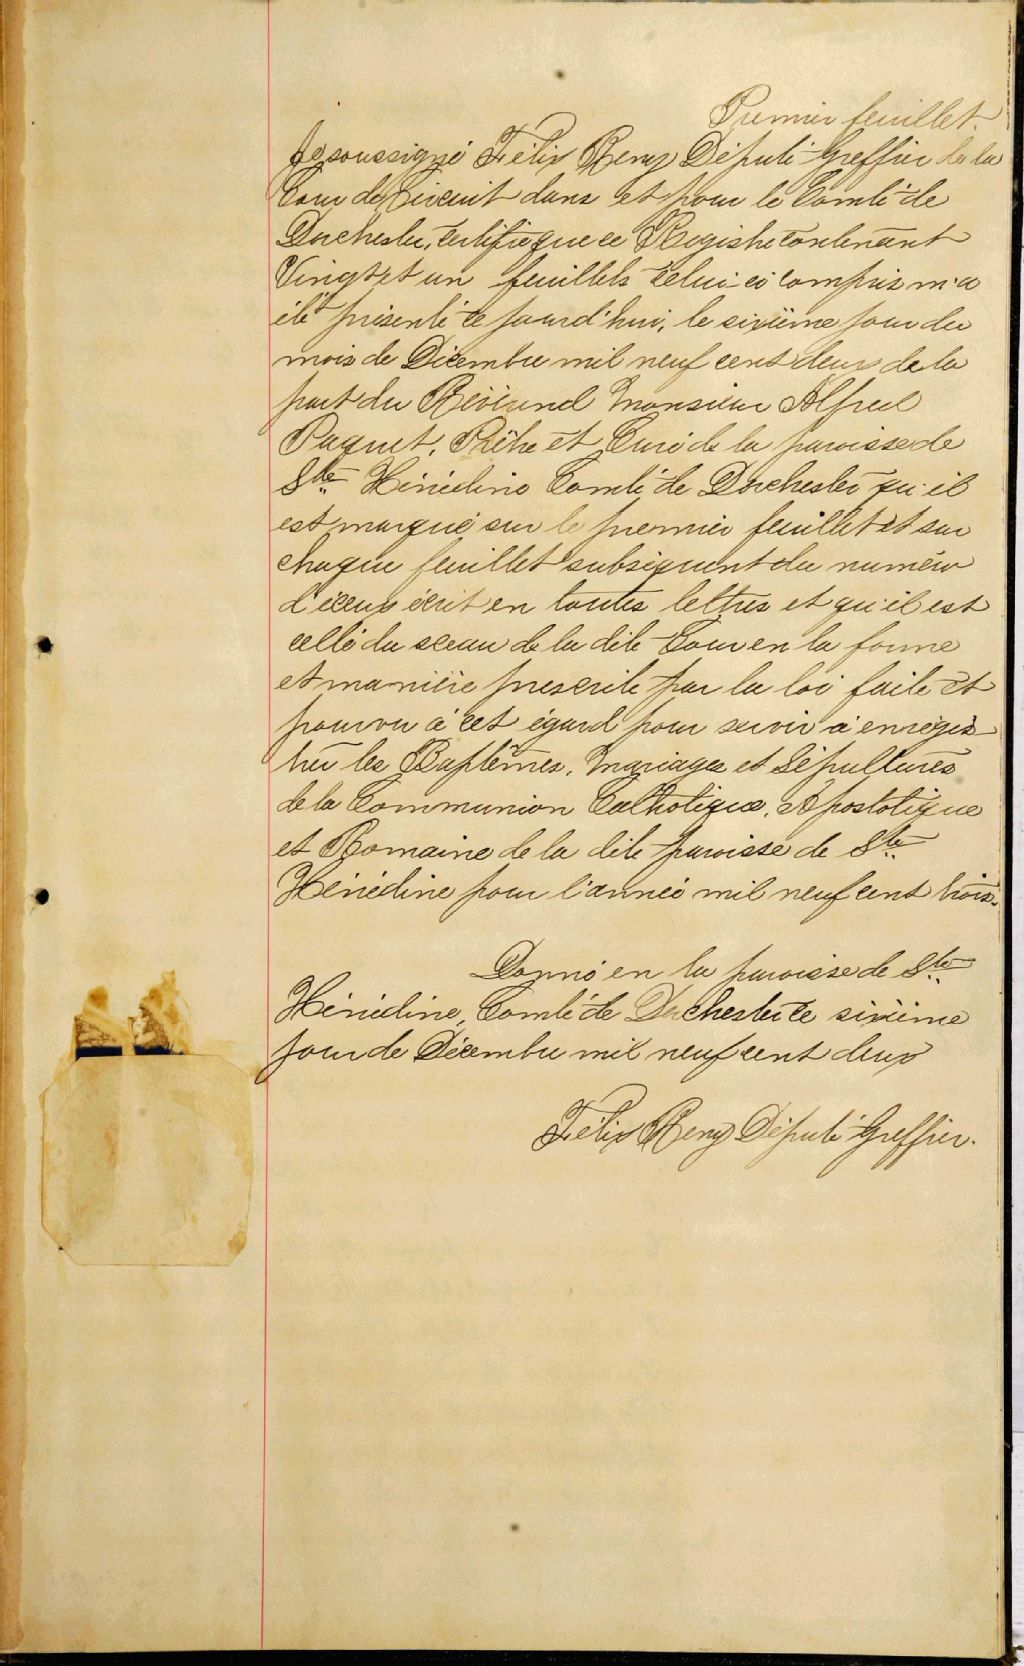 Premier feuillet.
Je soussigné Félix Remy Député Greffier de la
Cour de Circuit dans et pour le Comté de
Dorchester, certifie que ce Registre contenant
Vingt et un feuillets celui-ci compris m'a
été présenté ce jourd'hui, le sixième jour du
mois de Décembre mil neuf cent deux de la
part du Révérend Monsieur Alfred
Paquet, Prêtre et Curé de la paroisse de
Ste Hénédine Comté de Dorchester qu'il
est marqué sur le premier feuillet et sur
chaque feuillet subséquent du numéro
d'iceux écrit en toutes lettres et qu'il est
cellé du sceau de la dite Cour en la forme
et manière prescrite par la loi faite et
pourvu à cet égard pour servir à enrégis
trer les Baptêmes, Mariages et Sépultures
de la Communion Catholique, Apostolique
et Romaine de la dite paroisse de Ste
Hénédine pour l'année mil neuf cent trois.
Donné en la paroisse de Ste
Hénédine, Comté de Dorchester ce sixième
jour de Décembre mil neuf cent deux
Félix Remy Député Greffier.